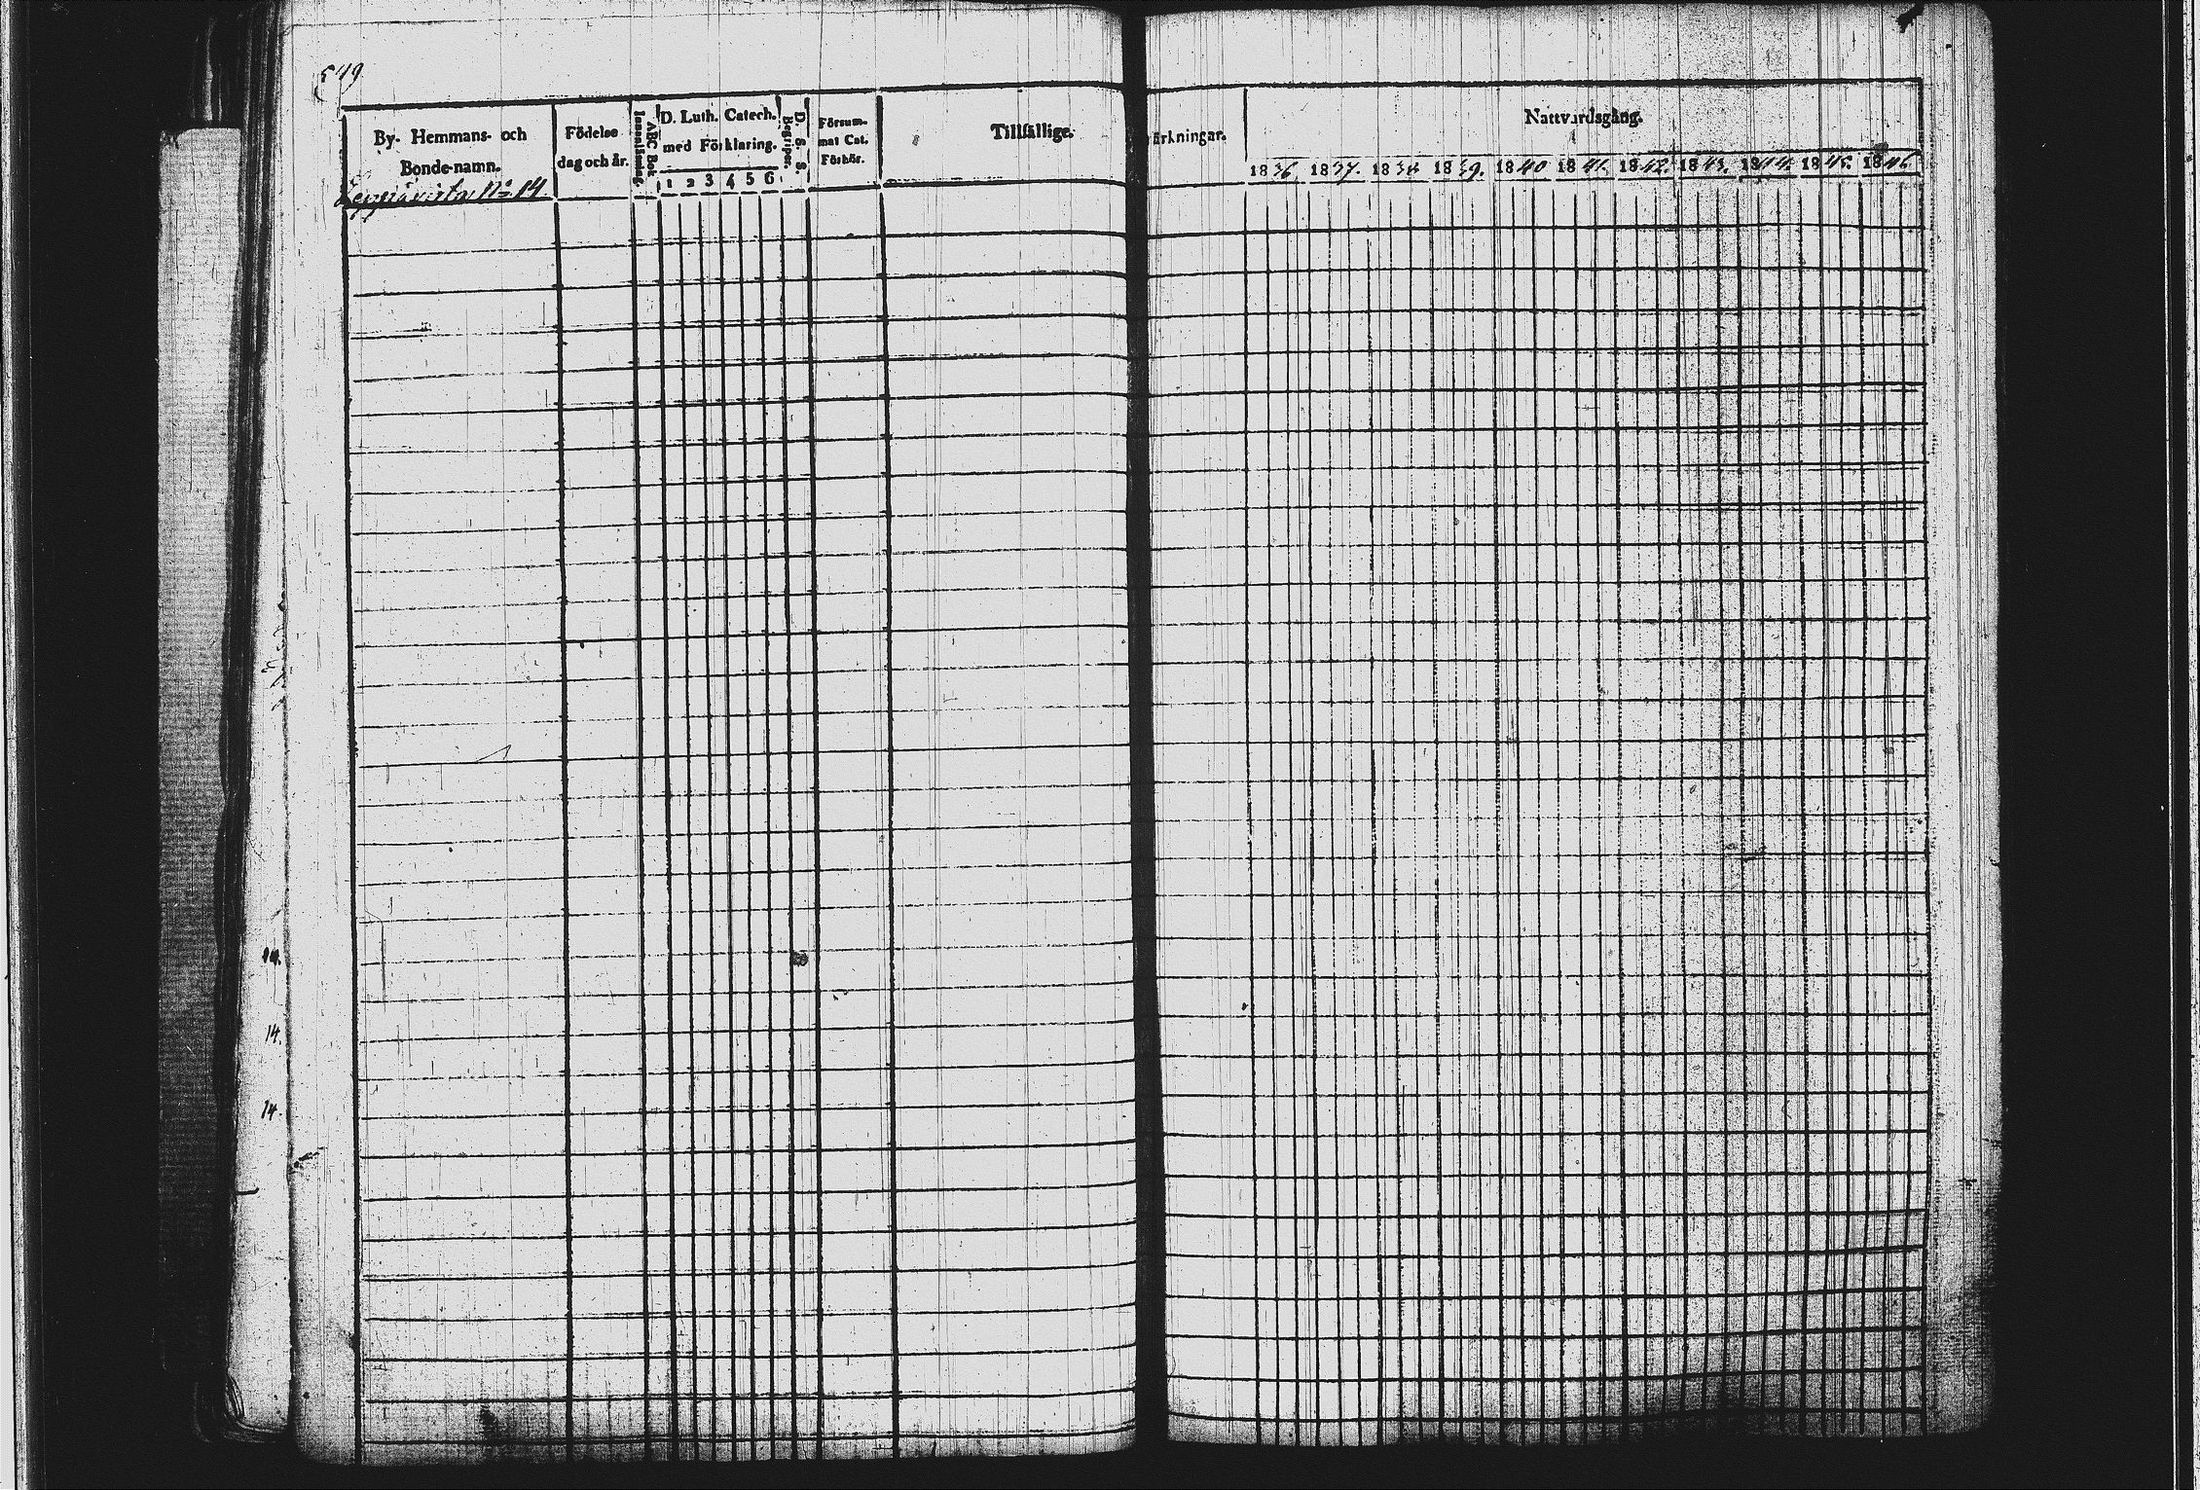 549
By- Hemmans- och
Bonde-namn.
Leppävirta N:o 14
Födelse
dag och år.
ABC Bok.
Innanläsning.
D. Luth. Catech.
med Förklaring.
1 2 3 4 5 6
D. S. S.
Begriper.
Försum-
mat Cat.
Förhör.
Tillfällige
märkningar.
Nattvardsgång.
1836. 1837. 1838 1839. 1840 1841. 1842. 1843. 1844. 1845. 1846.
14.
14.
14.